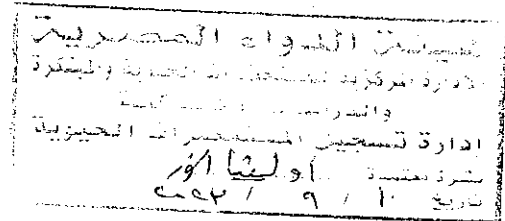 هيئة الدواء المصرية
الادارة المركزية للمستحضرات الحيوية والمبتكرة
والدراسات
ادارة تسجيل المستحضرات الحيوية
نشرة معتمدة
تاريخ ١٠ / ٩ / ٢٠٢٣